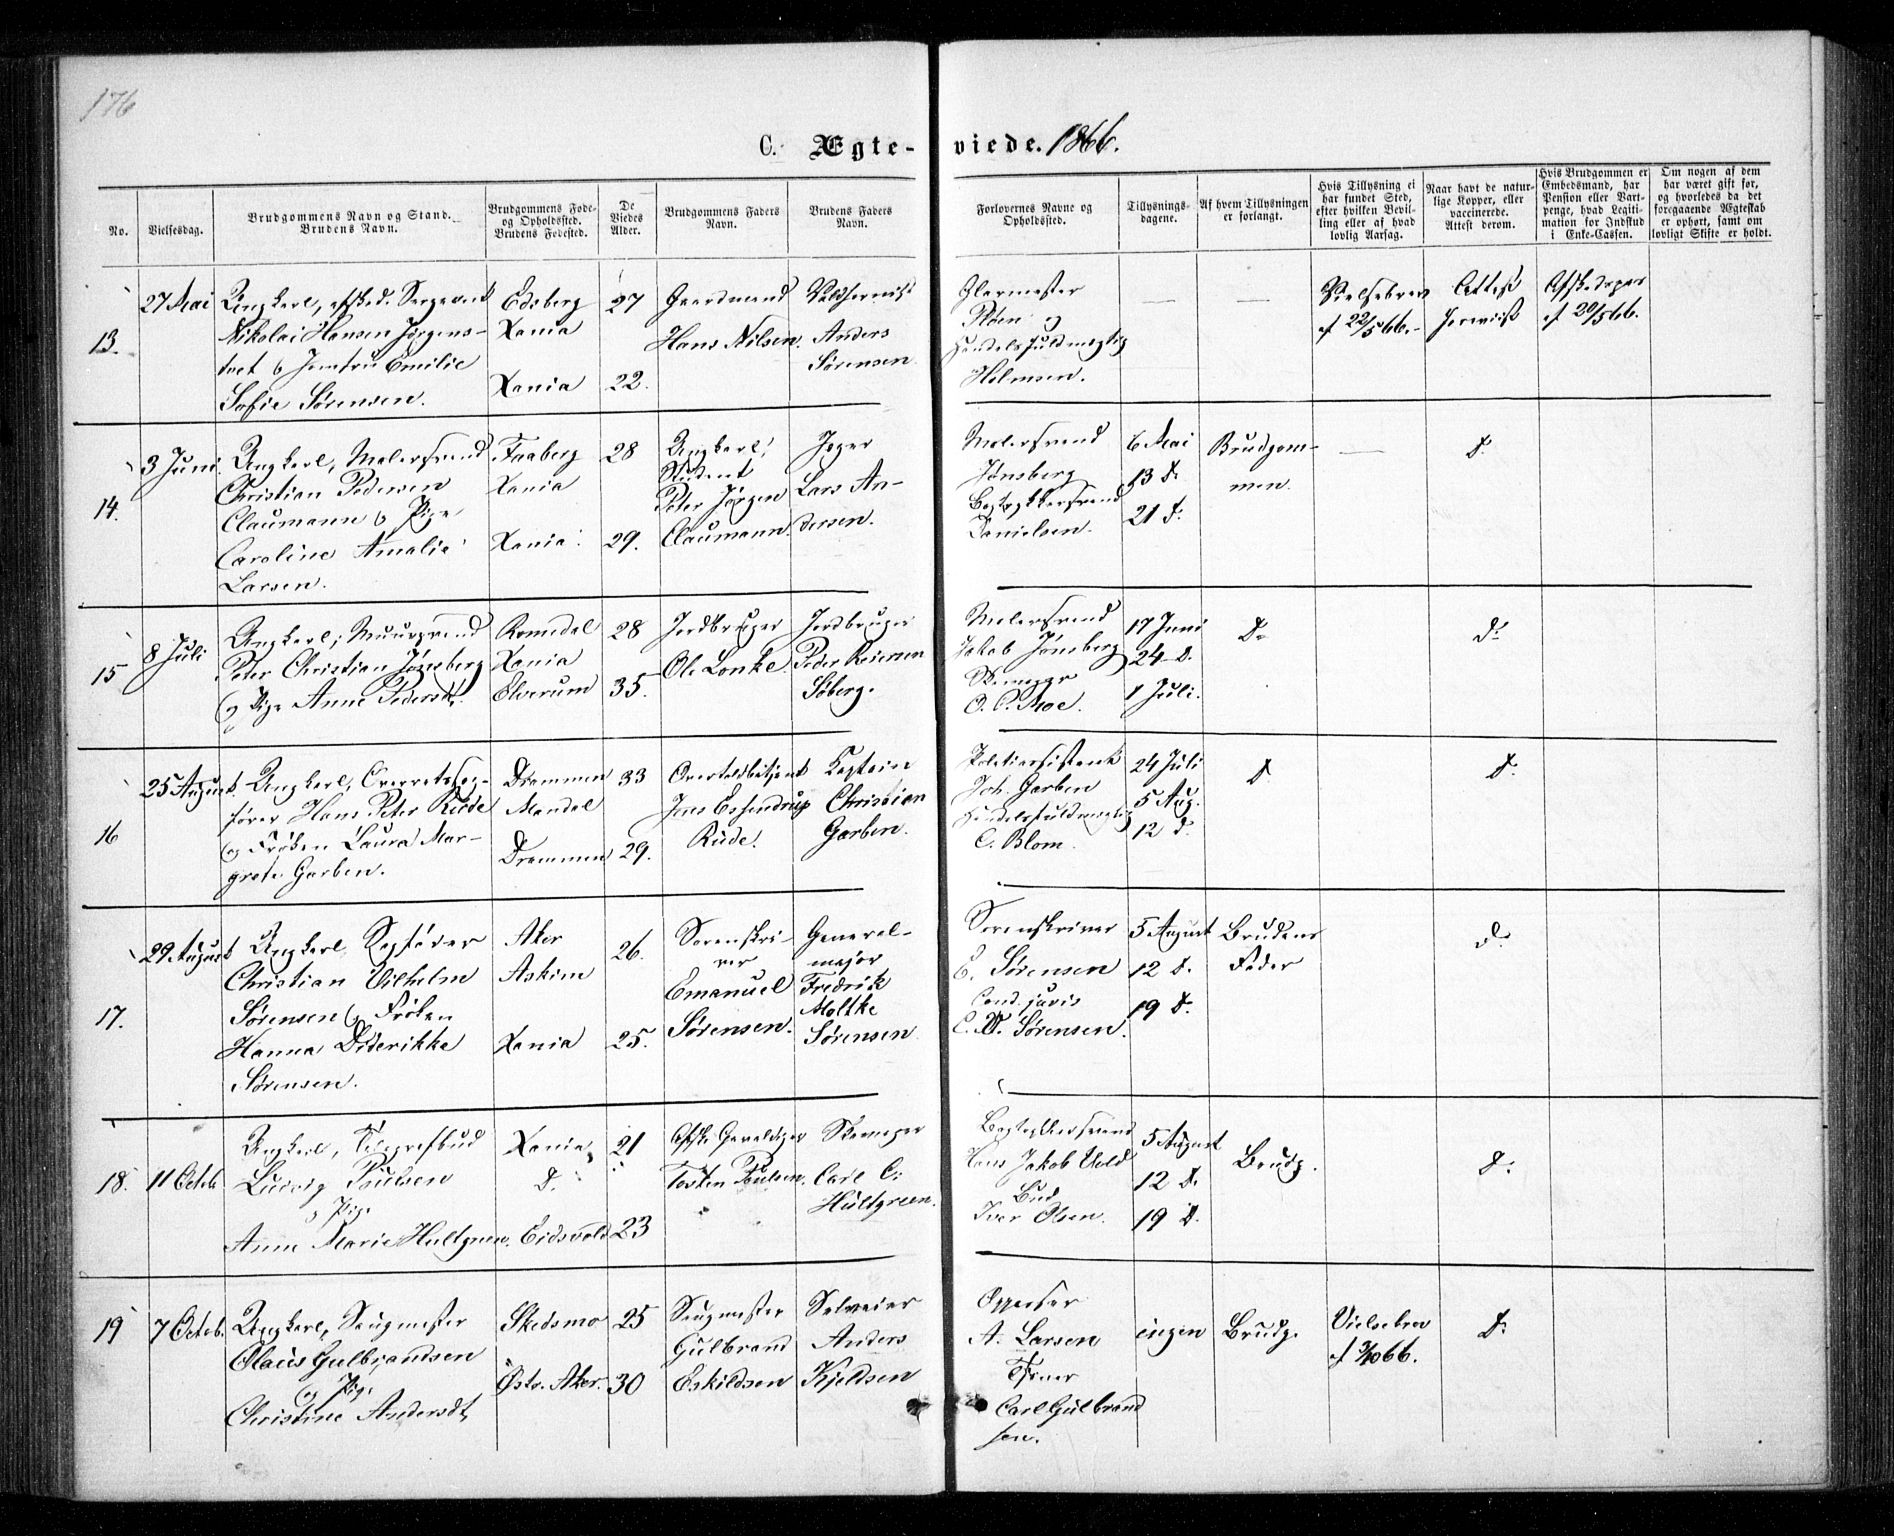 176
C. Ægte-viede. 1866.
No.
Vielsesdag.
Brudgommens Navn og Stand.
Brudens Navn.
Brudgommens Føde-
og Opholdssted.
Brudens Fødested.
De
Viedes
Alder.
Brudgommens Faders
Navn.
Brudens Faders
Navn.
Forlovernes Navne og
Opholdssted.
Tillysnings-
dagene.
Af hvem Tillysningen
er forlangt.
Hvis Tillysning ei
har fundet Sted,
efter hvilken Bevil-
ling eller af hvad
lovlig Aarsag.
Naar havt de natur-
lige Kopper, eller
vaccinerede.
Attest derom.
Hvis Brudgommen er
Embedsmand, har
Pension eller Vart-
penge, hvad Legiti-
mation for Indskud
i Enke-Cassen.
Om nogen af dem
har været gift før,
og hvorledes da det
foregaaende Ægteskab
er ophørt, samt om
lovligt Skifte er holdt.
13.
27 Mai
Ungkarl, afsked. Sergeant
Nikolai Hansen Jørgens-
tvet & Jomfru Emilie
Sofie Sørensen.
Edsberg
Xania
Xania
27
22.
Gaardmand
Hans Nilsen.
Anders
Sørensen
Glarmester
Pløen og
Handelsfuldmægtig
Holmsen.
—
—
Vielsebrev
af 22/5 66.
Attest
foreviist
Afskedspas
af 20/5 66.
14.
3 Juni
Ungkarl, Malersvend
Christian Pedersen
Claumann & Pige
Caroline Amalie
Larsen.
Faaberg
Xania
Xania.
28
29.
Ungkarl,
Student
Peter Jørgen
Claumann.
Lars An-
dersen.
Malersvend
Jønsberg
Danielsen.
6 Mai
13 d.
21 d.
Brudgom-
men.
—
d.
15
8 Juli
Ungkarl, Muursvend
Peter Christian Jønsberg
og Pige Anne Pedersdt.
Romedal
Xania
Elverum
28
35.
Jordbruger
Ole Lonke.
Jordbruger
Peder Reiersen
Søberg.
Malersvend
Jakob Jønsberg
O. P. Moe.
17 Juni
24 d.
1 Juli.
d.
d.
16
25 August.
Ungkarl, Overretssag-
fører Hans Peter Rude
og Frøken Laura Mar-
grete Garben.
Drammen
Mandal
Drammen
33
29.
Overtoldbetjent
Jens Essendrop
Rude.
Kaptein
Christian
Garben.
Politiassistent
Joh. Garben
Handelsfuldmægtig
C. Blom.
24 Juli
5 Aug.
12 d.
d.
d.
17.
29 August
Ungkarl Sagfører
Christian Vilhelm
Sørensen & Frøken
Hanna Diderikke
Sørensen.
Aker
Askim
Xania
26.
25.
Sorenskri-
ver
Emanuel
Sørensen.
General-
major
Fredrik
Moltke
Sørensen
Sorenskriver
E. Sørensen
Cand. juris
C. W. Sørensen.
5 August
12 d.
19 d.
Brudens
Fader
d.
18.
11 Octob.
Ungkarl, Telegrafbud
Ludvig Paulsen
& Pige
Anne Marie Hultgreen.
Xania
d.
Eidsvold
21
23
Tosten Paulsen.
Carl C.
Hultgreen.
Hans Jakob
Bud
Iver Olsen.
5 August
12 d.
19 d.
Brudg.
d.
19
7 Octob.
Ungkarl, Saugmester
Olaus Gulbrandsen
og Pige
Christine Andersdt.
Skedsmo
Østr. Aker.
25
30
Saugmester
Gulbrand
Eskildsen
Selveier
Anders
Kjeldsen
A. Larsen
Carl Gulbrand
sen.
ingen
Brudg.
Vielsebrev
af 3/10 66.
d.